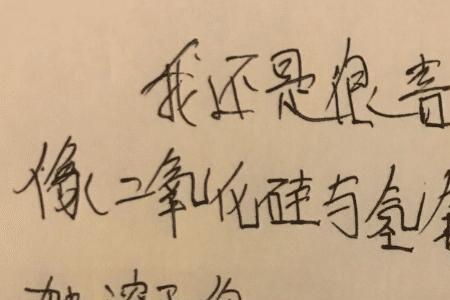 我还是很喜
像二氧化硅与氢